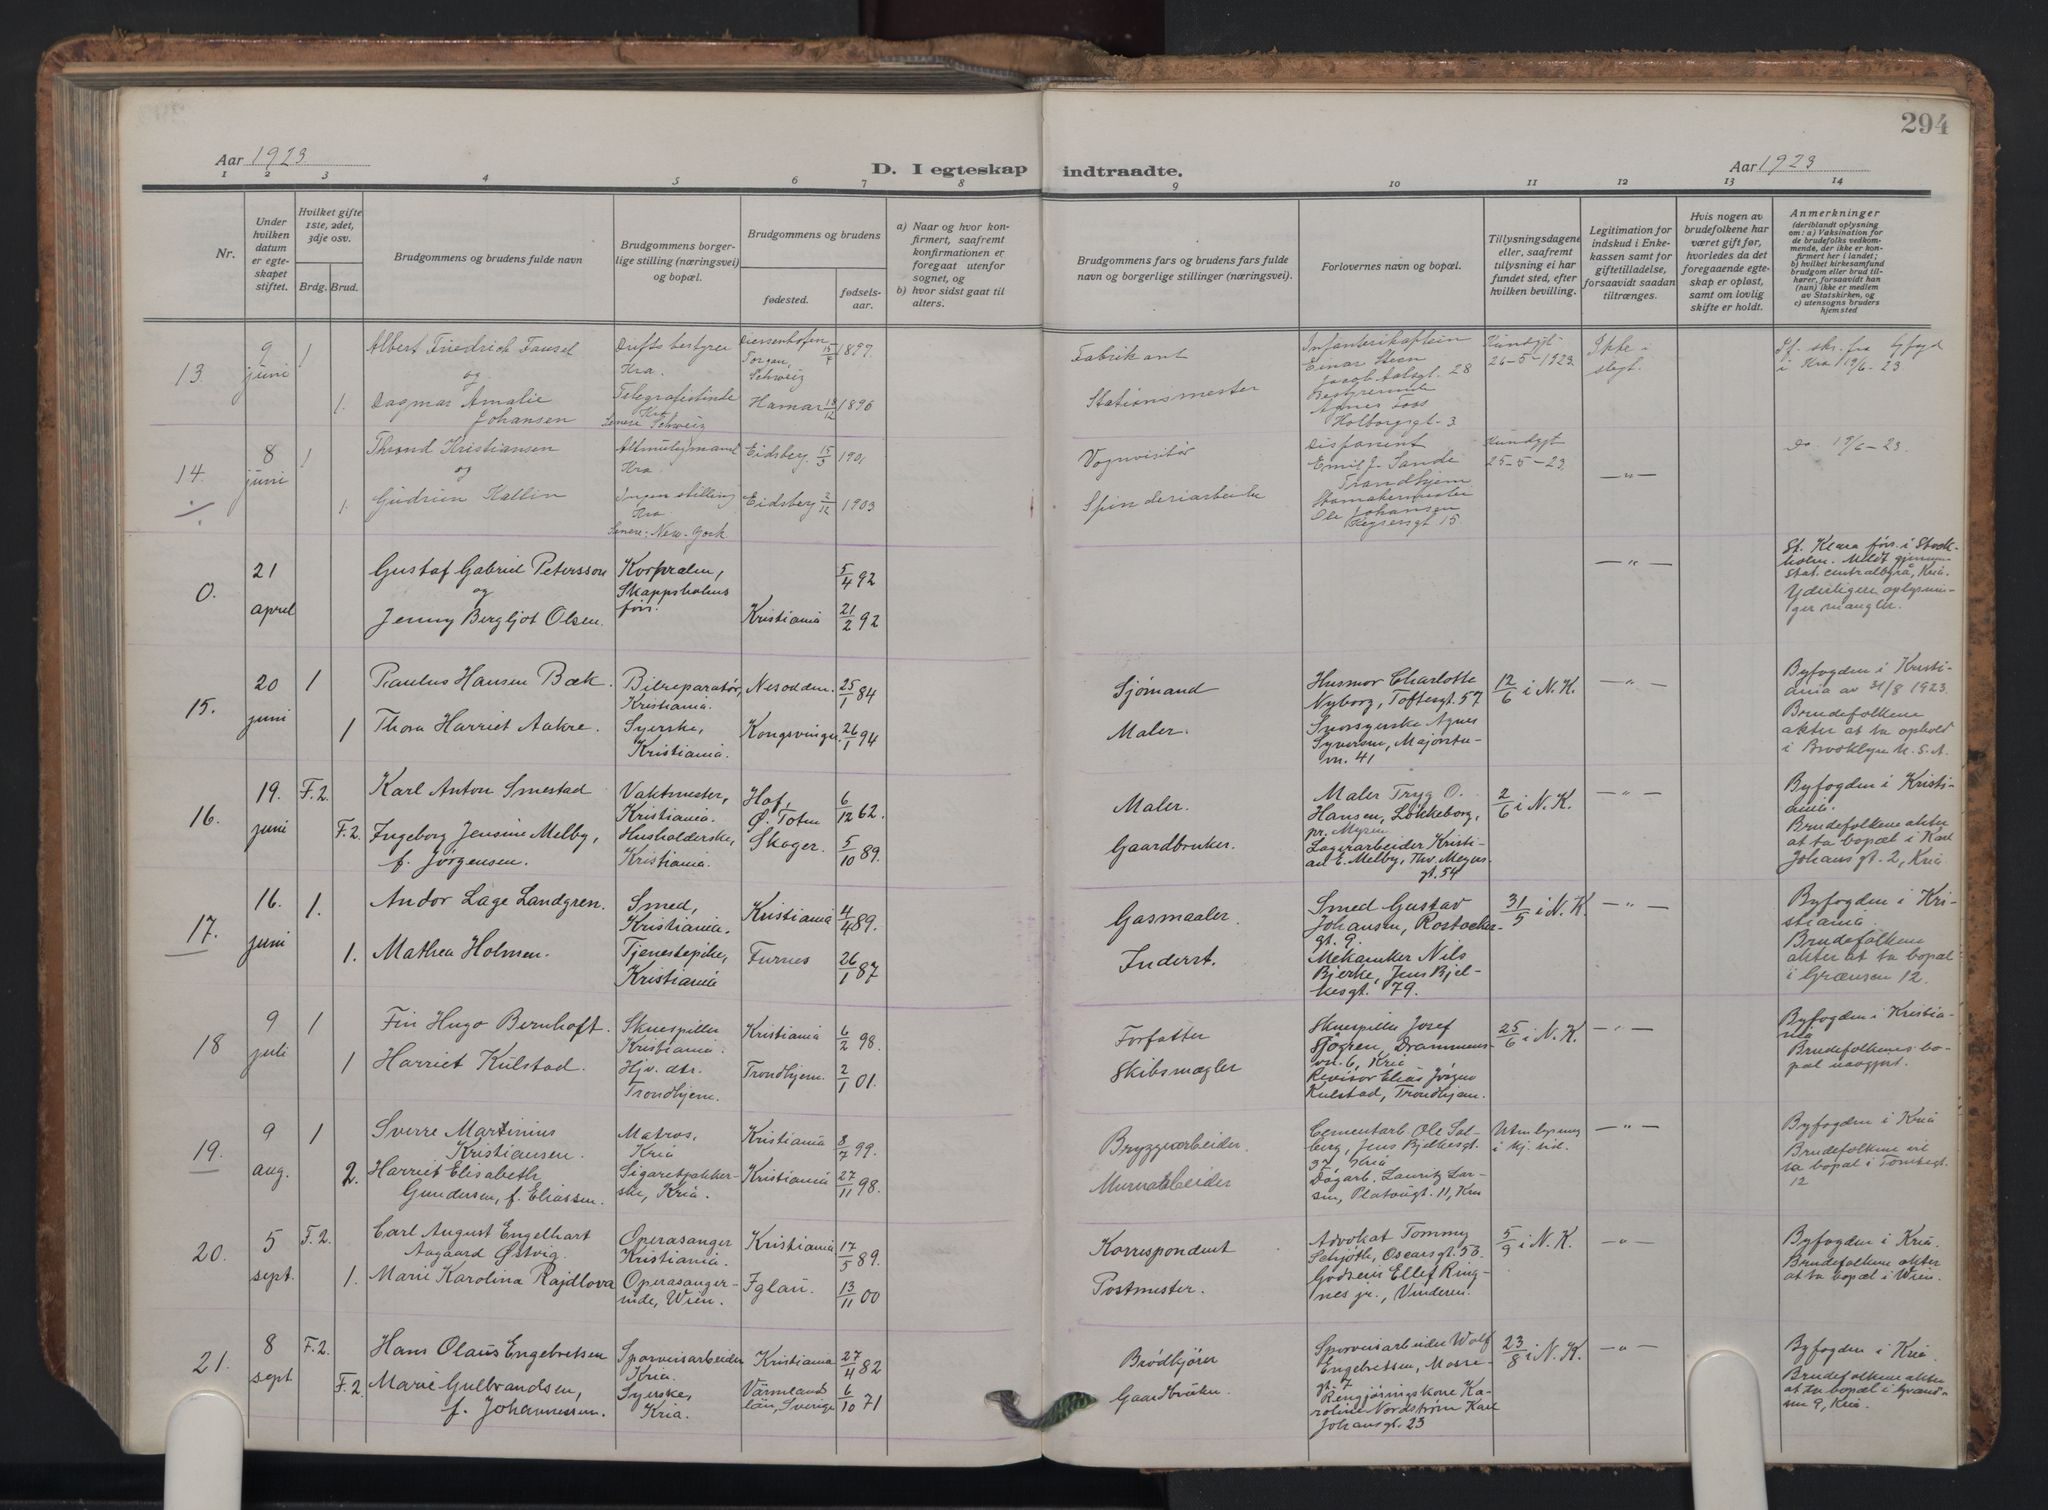 294
Aar 1923
D. I egteskap indtraadte.
Aar 1923
1 2 3 4 5 6 7 8 9 10 11 12 13 14
Nr.
Under hvilken datum er egteskapet stiftet.
Hvilket gifte 1ste, 2det, 3dje osv.
Brdg. Brud.
Brudgommens og brudens fulde navn
Brudgommens borgerlige stilling (næringsvei) og bopæl.
Brudgommens og brudens
fødested.
fødselsaar.
a) Naar og hvor konfirmert, saafremt konfirmationen er foregaat utenfor sognet, og
b) hvor sidst gaat til alters.
Brudgommens fars og brudens fars fulde navn og borgerlige stillinger (næringsvei).
Forlovernes navn og bopæl.
Tillysningsdagene eller, saafremt tillysning ei har fundet sted, efter hvilken bevilling.
Legitimation for indskud i Enkekassen samt for giftetilladelse, forsaavidt saadan tiltrænges.
Hvis nogen av brudefolkene har været gift før, hvorledes da det foregaaende egteskap er opløst, samt om lovlig skifte er holdt.
Anmerkninger
(deriblandt oplysning om: a) Vaksination for de brudefolks vedkommende, der ikke er konfirmert her i landet;
b) hvilket kirkesamfund brudgom eller brud tilhører, forsaavidt han (hun) ikke er medlem av Statskirken, og
c) utensogns bruders hjemsted
13. 9 juni 1
Albert Friedrich
og
1. Dagmar Amalie Johansen
Driftsbestyrer Kra.
Telegrafistinde Kra
Senere Schweiz
Schweiz 1897.
Hamar 18/12 1896
Fabrikant
Stationsmester
Infanterikaptein
Einar Steen
Jacob Aalsgt. 28
Bestyrerinde
Agnes Foss
Holbergsgt. 3
Kundgjt 26-5-1923.
Ikke i slegt.
i Kra 19/6-23
14. 8 juni 1
Thrond Kristiansen
og
1. Gudrun Kallin
Kra
Ingen stilling Kra
Senere: New-York
Eidsberg 15/3 190
Eidsberg 2/12 1903
Vognvisitør
Spinderiarbeider
Disponent
Emil J. Sande
Trondhjem
Skomakermester
Ole Johansen
Keysersgt. 15
Kundgjt 25-5-23.
— " —
Do. 19/6-23.
0. 21 april
Gustaf Gabriel Petersson
og
Jenny Bergljot Olsen.
Korpralen,
Skeppsholms förs.
5/4 92
Kristiania 21/2 92
— " —
St. Klara förs. i Stockholm. Meldt gjennem stat. centralbyrå, Kria.
Yderligere oplysninger mangler.
15. 20 juni 1
Paulus Hansen Bæk.
1 Thora Harriet Aakre.
Bilreparatør, Kristiania.
Syerske, Kristiania.
Nesodden. 25/1 84
Kongsvinger 26/1 94
Sjømand
Maler.
Husmor Charlotte
Nyborg, Toftesgt. 57
Snorsyerske Agnes
Syversen, Majorstuvn. 41
12/6 i N. K.
— " —
Byfogden i Kristiania av 31/8 1923.
Brudefolkene akter at ta ophold i Brooklyn U. S. A.
16. 19. juni F. 2.
Karl Anton Smestad
F. 2. Ingeborg Jensine Melby,
f. Jørgensen.
Vaktmester, Kristiania.
Husholderske, Kristiania.
Hof, Ø. Toten 6/12 62.
Skoger. 5/10 89.
Maler.
Gaardbruker.
Maler Tryg O.
Hansen, Løkkeborg,
pr. Mysen
Lagerarbeider Kristian E. Melby, Thv. Meyersgt. 54
2/6 i N. K.
— " —
Byfogden i Kristiania.
Brudefolkene akter at ta bopæl i Karl Johansgt. 2, Kria.
17. 16. juni 1.
Andor Lage Landgren.
1. Mathea Holmen.
Smed, Kristiania.
Tjenestepike, Kristiania
Kristiania 4/4 89.
Furnes 26/1 87
Gasmaaler.
Inderst.
Smed Gustav
Johansen, Rostockergt. 9.
Mekaniker Nils
Bjerke, Jens Bjelkesgt. 79.
31/5 i N. K.
— " —
Byfogden i Kristiania.
Brudefolkene akter at ta bopæl i Grænsen 12.
18 9 juli 1
Fin Hugo Bernhoft.
1 Harriet Kulstad.
Skuespiller Kristiania.
Hjv. dtr. Trondhjem.
Kristiania 6/2 98.
Trondhjem. 2/1 01.
Forfatter
Skibsmægler
Skuespiller Josef
Sjøgren, Drammensvn. 6, Kria
Revisor Elias Jørgen
Kulstad, Trondhjem.
25/6 i N. K.
— " —
Byfogden i Kristiania
Brudefolkenes bopæl uavgjort.
19. 9 aug. 1
Sverre Martinius Kristiansen.
2. Harriet Elisabeth
Gundersen, f. Eliassen.
Matros, Kria
Sigaretpakkerske, Kria.
Kristiania 8/7 99.
Kristiania 27/11 98.
Bryggearbeider.
Murarbeider
Cementarb. Ole Solberg, Jens Bjelkesgt. 37, Kria
Dagarb. Lauritz Larsen, Platousgt. 11, Kria
Uten lysning
— " —
Byfogden i Kria
Brudefolkene vil ta bopæl i Tomtegt. 12
20. 5 sept. F. 2.
Carl August Engelhart
Aagaard Østvig.
1. Marie Karolina Rajdlova
Operasanger Kristiania.
Operasangerinde, Wien.
Kristiania 17/5 89.
Iglau. 13/11 00
Korrespondent
Postmester.
Advokat Tommy
Schjøth, Oscarsgt. 53.
Godseier Ellef Ringnes jr., Vinderen.
5/9 i N. K.
— " —
Byfogden i Kria.
Brudefolkene akter at ta bopæl i Wien.
21. 8 sept F. 2.
Hans Olaus Engebretsen
F. 2. Marie Gulbrandsen,
f. Johannessen.
Sporveisarbeider Kria.
Syerske, Kria.
Kristiania 27/4 82
Värmlands län, Sverige 6/10 71
Brødkjører
Gaardbruker.
Sporveisarbeider Wolf
Engebretsen, Mossegt. 7
Rengjøringskone Karoline Nordstrøm Karl
Johansgt. 23
23/8 i N. K.
— " —
Byfogden i Kria.
Brudefolkene akter at ta bopæl i Grændsen 9, Kria.